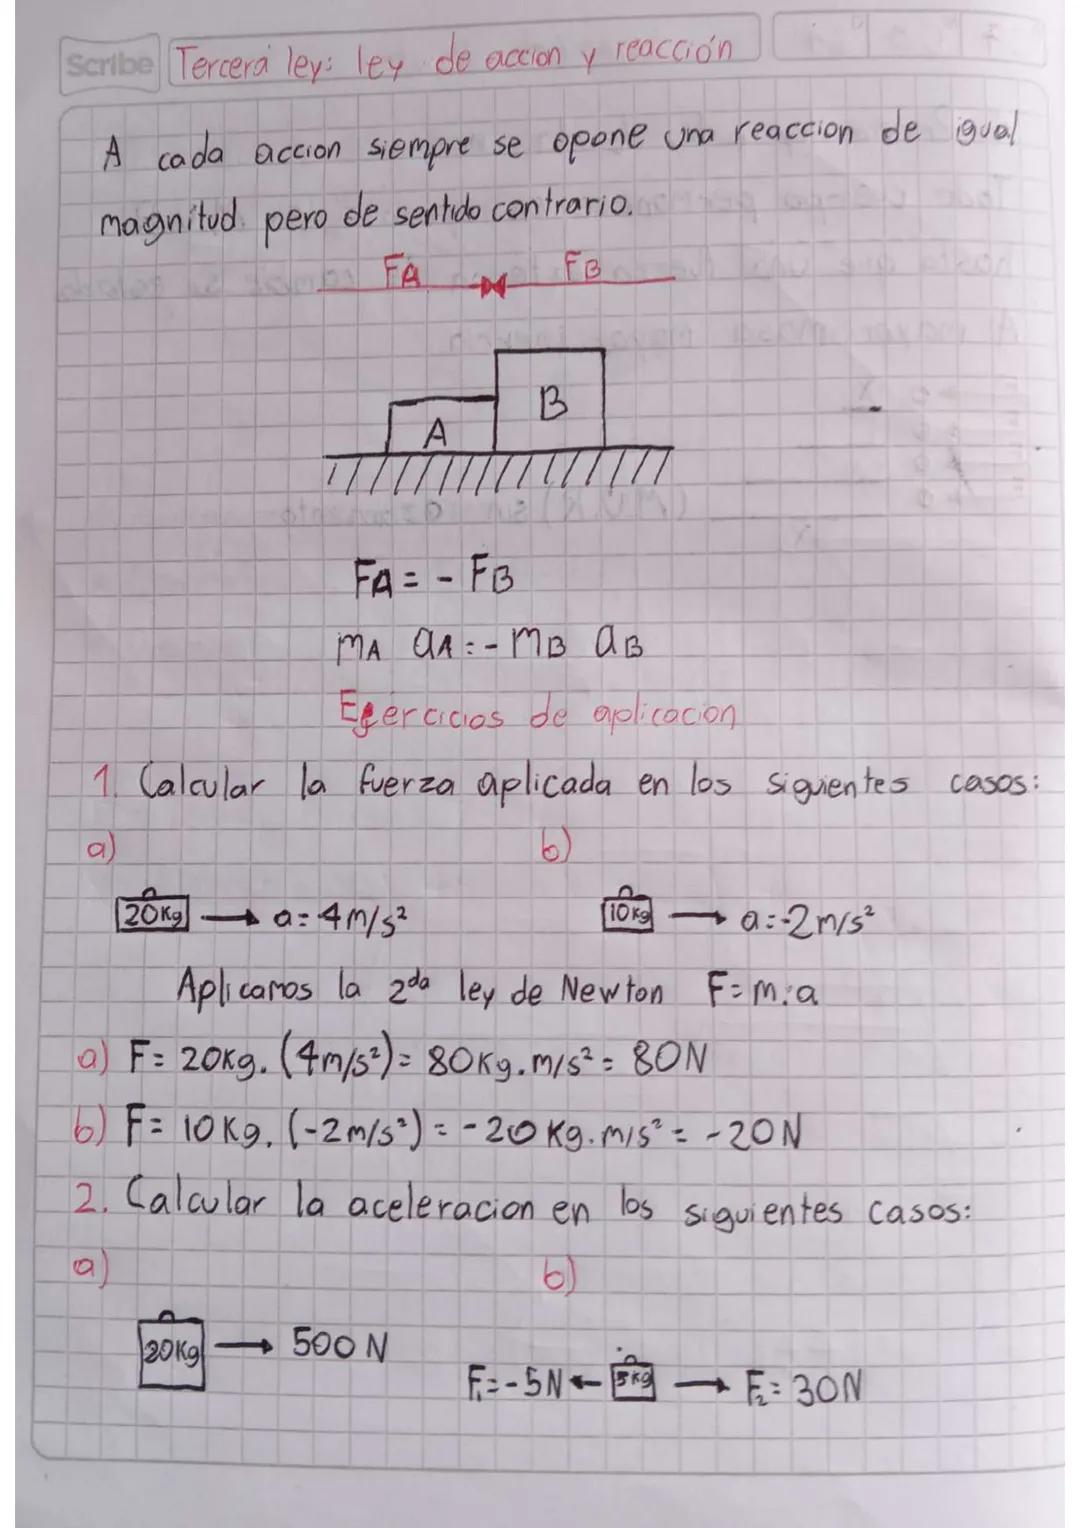 Scribe
Tercera ley: ley de accion y reacción
A cada accion siempre se opone una reaccion de igual
magnitud pero de sentido contrario.
FA FB
B
A
FA = - FB
mA aA = - mB aB
Egercicios de aplicacion
1. Calcular la fuerza aplicada en los siguientes casos:
a) b)
20Kg → a = 4m/s² 10Kg → a = -2m/s²
Aplicamos la 2da ley de Newton F = m.a
a) F = 20Kg. (4m/s²) = 80Kg.m/s² = 80N
b) F = 10Kg. (-2m/s²) = -20Kg.m/s² = -20N
2. Calcular la aceleracion en los siguientes casos:
a) b)
20Kg → 500N
F₁ = -5N ← 5Kg → F₂ = 30N